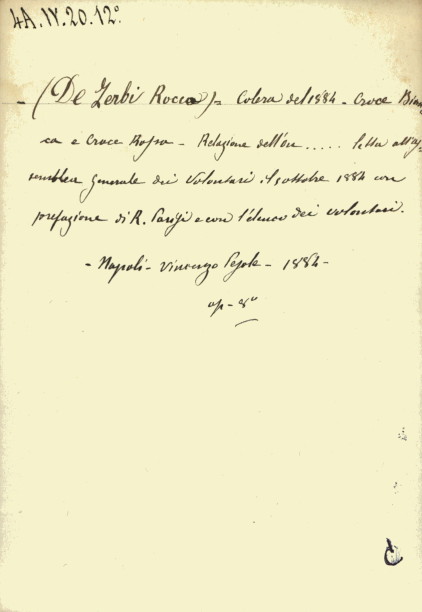 4A.IV.20.12º
- (De Zerbi Rocco) = Colera del 1884 - Croce Bian
ca e Croce Rossa - Relazione dell'on ..... letta all'as
semblea generale dei Volontari il 5 ottobre 1884 con
prefazione di R. Parisi e con l'elenco dei volontari.
- Napoli - Vincenzo - 1884 -
op - 8º